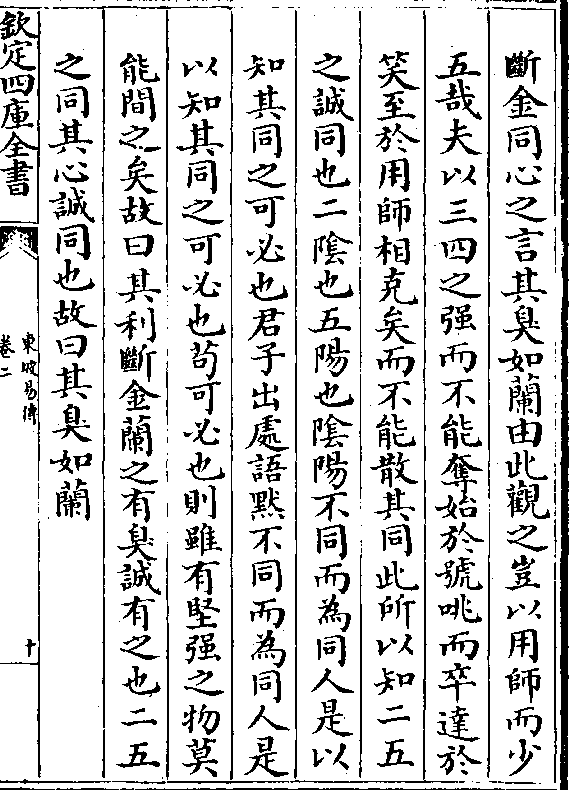 斷金同心之言其臭如蘭由此觀之豈以用師而少
五哉夫以三四之强而不能奪始於號咷而卒達於
笑至於用師相克矣而不能散其同此所以知二五
之誠同也二陰也五陽也陰陽不同而為同人是以
知其同之可必也君子出處語默不同而為同人是
以知其同之可必也茍可必也則雖有堅强之物莫
能間之矣故曰其利斷金蘭之有臭誠有之也二五
之同其心誠同也故曰其臭如蘭
欽定四庫全書
東坡易傳
卷二
十